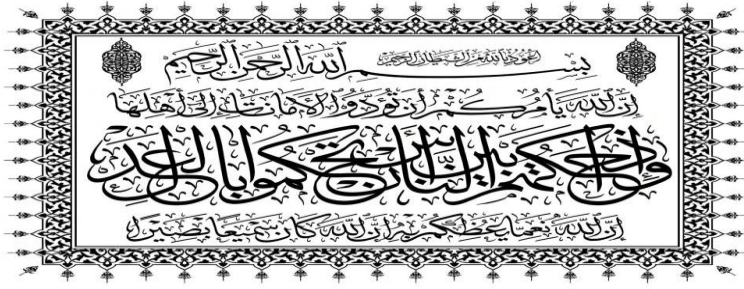 أعوذ بالله من الشيطان الرجيم
بِسْمِ ٱللَّهِ ٱلرَّحْمَٰنِ ٱلرَّحِيمِ
إِنَّ ٱللَّهَ يَأْمُرُكُمْ أَنْ تُؤَدُّوا ٱلْأَمَانَاتِ إِلَىٰ أَهْلِهَا
وَإِذَا حَكَمْتُمْ بَيْنَ ٱلنَّاسِ أَنْ تَحْكُمُوا بِٱلْعَدْلِ
إِنَّ ٱللَّهَ نِعِمَّا يَعِظُكُمْ بِهِ إِنَّ ٱللَّهَ كَانَ سَمِيعًا بَصِيرًا